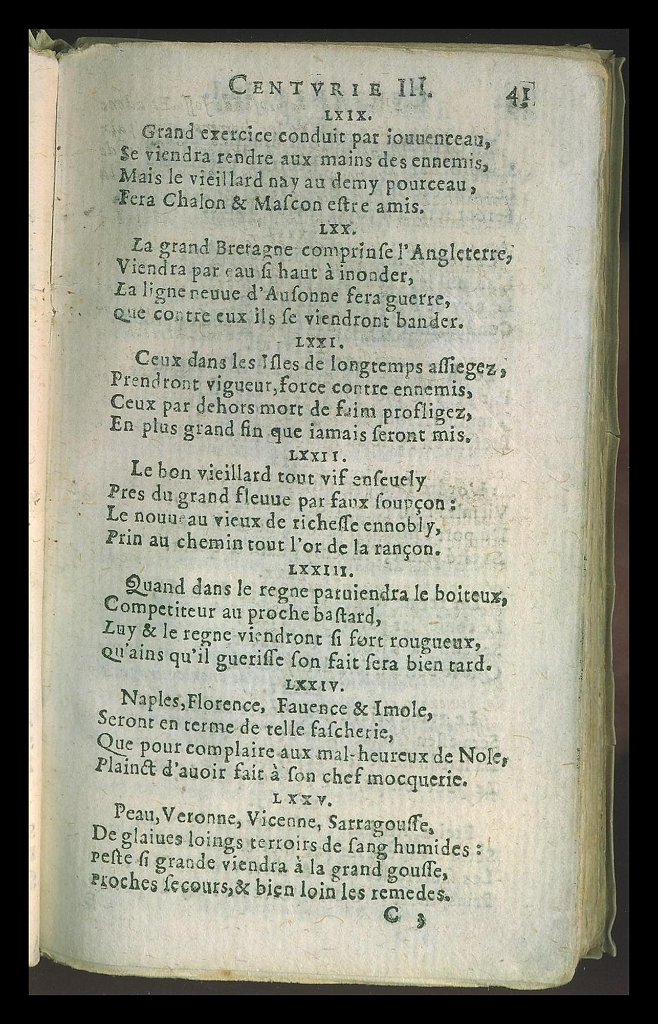 CENTVRIE III. 41
LXIX.
Grand exercice conduit par iouuenceau,
Se viendra rendre aux mains des ennemis,
Mais le vieillard nay au demy pourceau,
Fera Chalon & Maſcon eſtre amis.
LXX.
La grand Bretagne comprinſe l'Angleterre,
Viendra par eau ſi haut à inonder,
La ligne neuue d'Auſonne fera guerre,
Que contre eux ils ſe viendront bander.
LXXI.
Ceux dans les Iſles de longtemps aſſiegez,
Prendront vigueur, force contre ennemis,
Ceux par dehors mort de faim profligez,
En plus grand fin que iamais ſeront mis.
LXXII.
Le bon vieillard tout vif enſeuely
Pres du grand fleuue par faux ſoupçon:
Le nouueau vieux de richeſſe ennobly,
Prin au chemin tout l'or de la rançon.
LXXIII.
Quand dans le regne paruiendra le boiteux,
Competiteur au proche baſtard,
Luy & le regne viendront ſi fort rougueux,
Qu'ains qu'il gueriſſe ſon fait ſera bien tard.
LXXIV.
Naples, Florence, Fauence & Imole,
Seront en terme de telle faſcherie,
Que pour complaire aux mal-heureux de Nole,
Plainct d'auoir fait à ſon chef mocquerie.
LXXV.
Peau, Veronne, Vicenne, Sarragouſſe,
De glaiues loings terroirs de ſang humides:
Peſte ſi grande viendra à la grand gouſſe,
Proches ſecours, & bien loin les remedes.
C 3